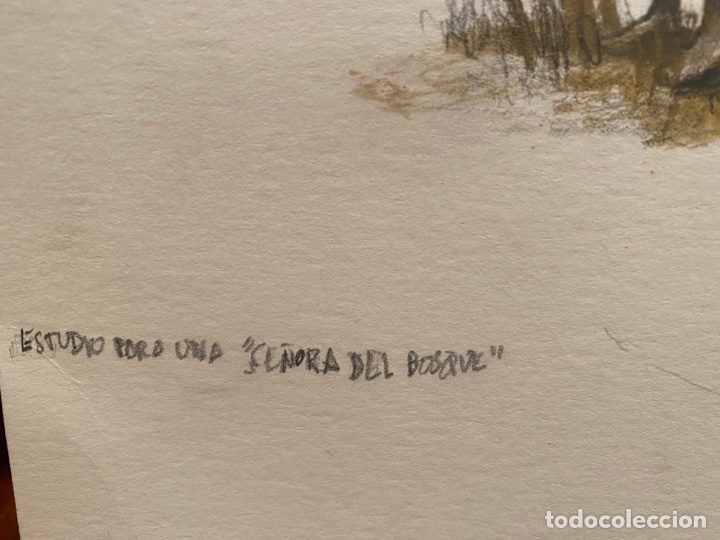 ESTUDIO PARA UNA "SEÑORA DEL BOSQUE"
todocoleccion